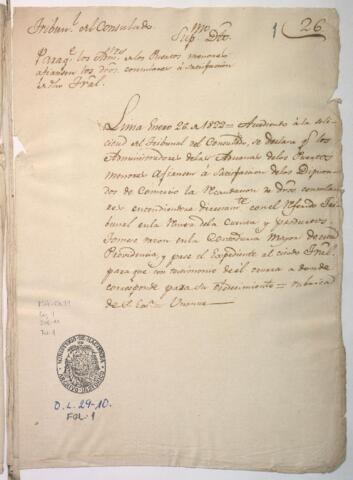 Tribunl. del Consulado
Sup.mo Dto.
1 26
Paraq.e los Adm.res de los Puertos menores
afiancen los dros. consulares á satisfaccion
de dho Tral.
Lima Enero 26 de 1822 = Accediendo á la soli-
citud del Tribunal del Consulado, se declara q.e los
Administradores de las Aduanas de los Puertos
Menores afiancen á Satisfaccion de los Diputa-
dos de Comercio la Recaudacion de dros. consula-
res entendiendose directam.te con el referido Tri-
bunal en la Rendicion de la Cuenta y productos.
Tomese razon en la Contaduria Mayor de esta
Providencia, y pase el Expediente al citado Tral.
para que con testimonio de el ocurra a donde
corresponde para su cumplimiento = rubrica
de S. Exa. = Unanue =
MINISTERIO DE HACIENDA
ARCHIVO HISTORICO
O.L. 29-10.
FOL: 1